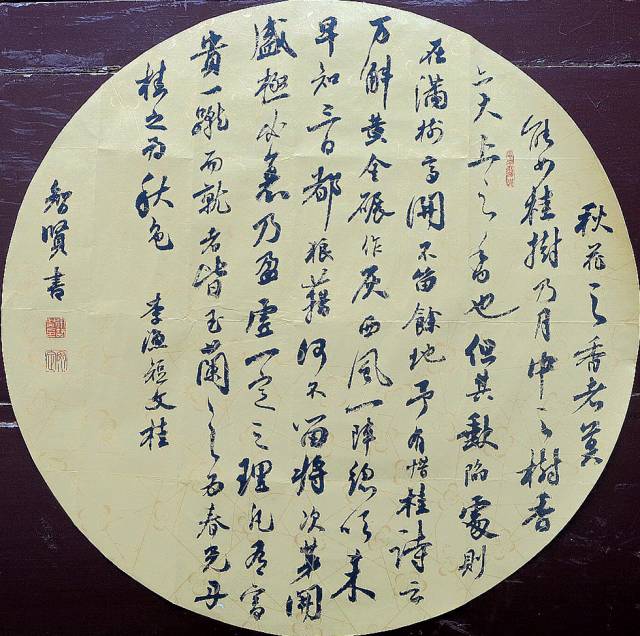 秋花之香者莫
能如桂樹乃月中之樹香
亦天上之香也但其缺陷處則
在滿树齊開不留餘地予有惜桂詩云
万斛黄金碾作灰西風一陣總吹來
早知三日都狼藉何不留將次第開
盛極必衰乃盈虛一定之理凡有富
貴一蹴而就者皆玉蘭之為春光丹
桂之為秋色 李漁短文桂
智賢書